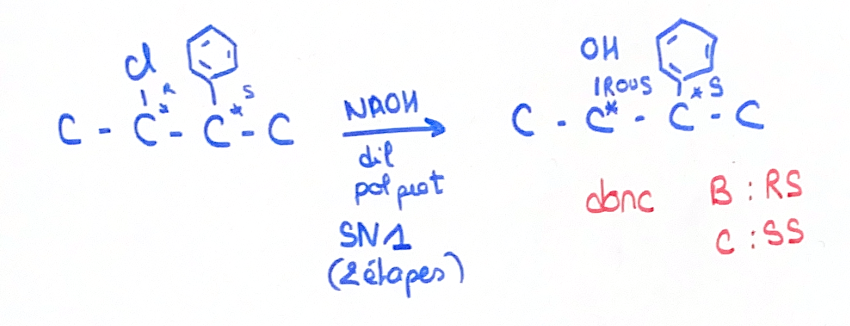 Cl R S
C - C* - C* - C
NAOH
dil
pol prot
SN1
(2 étapes)
OH
I R OU S S
C - C* - C* - C
donc B : RS
C : SS